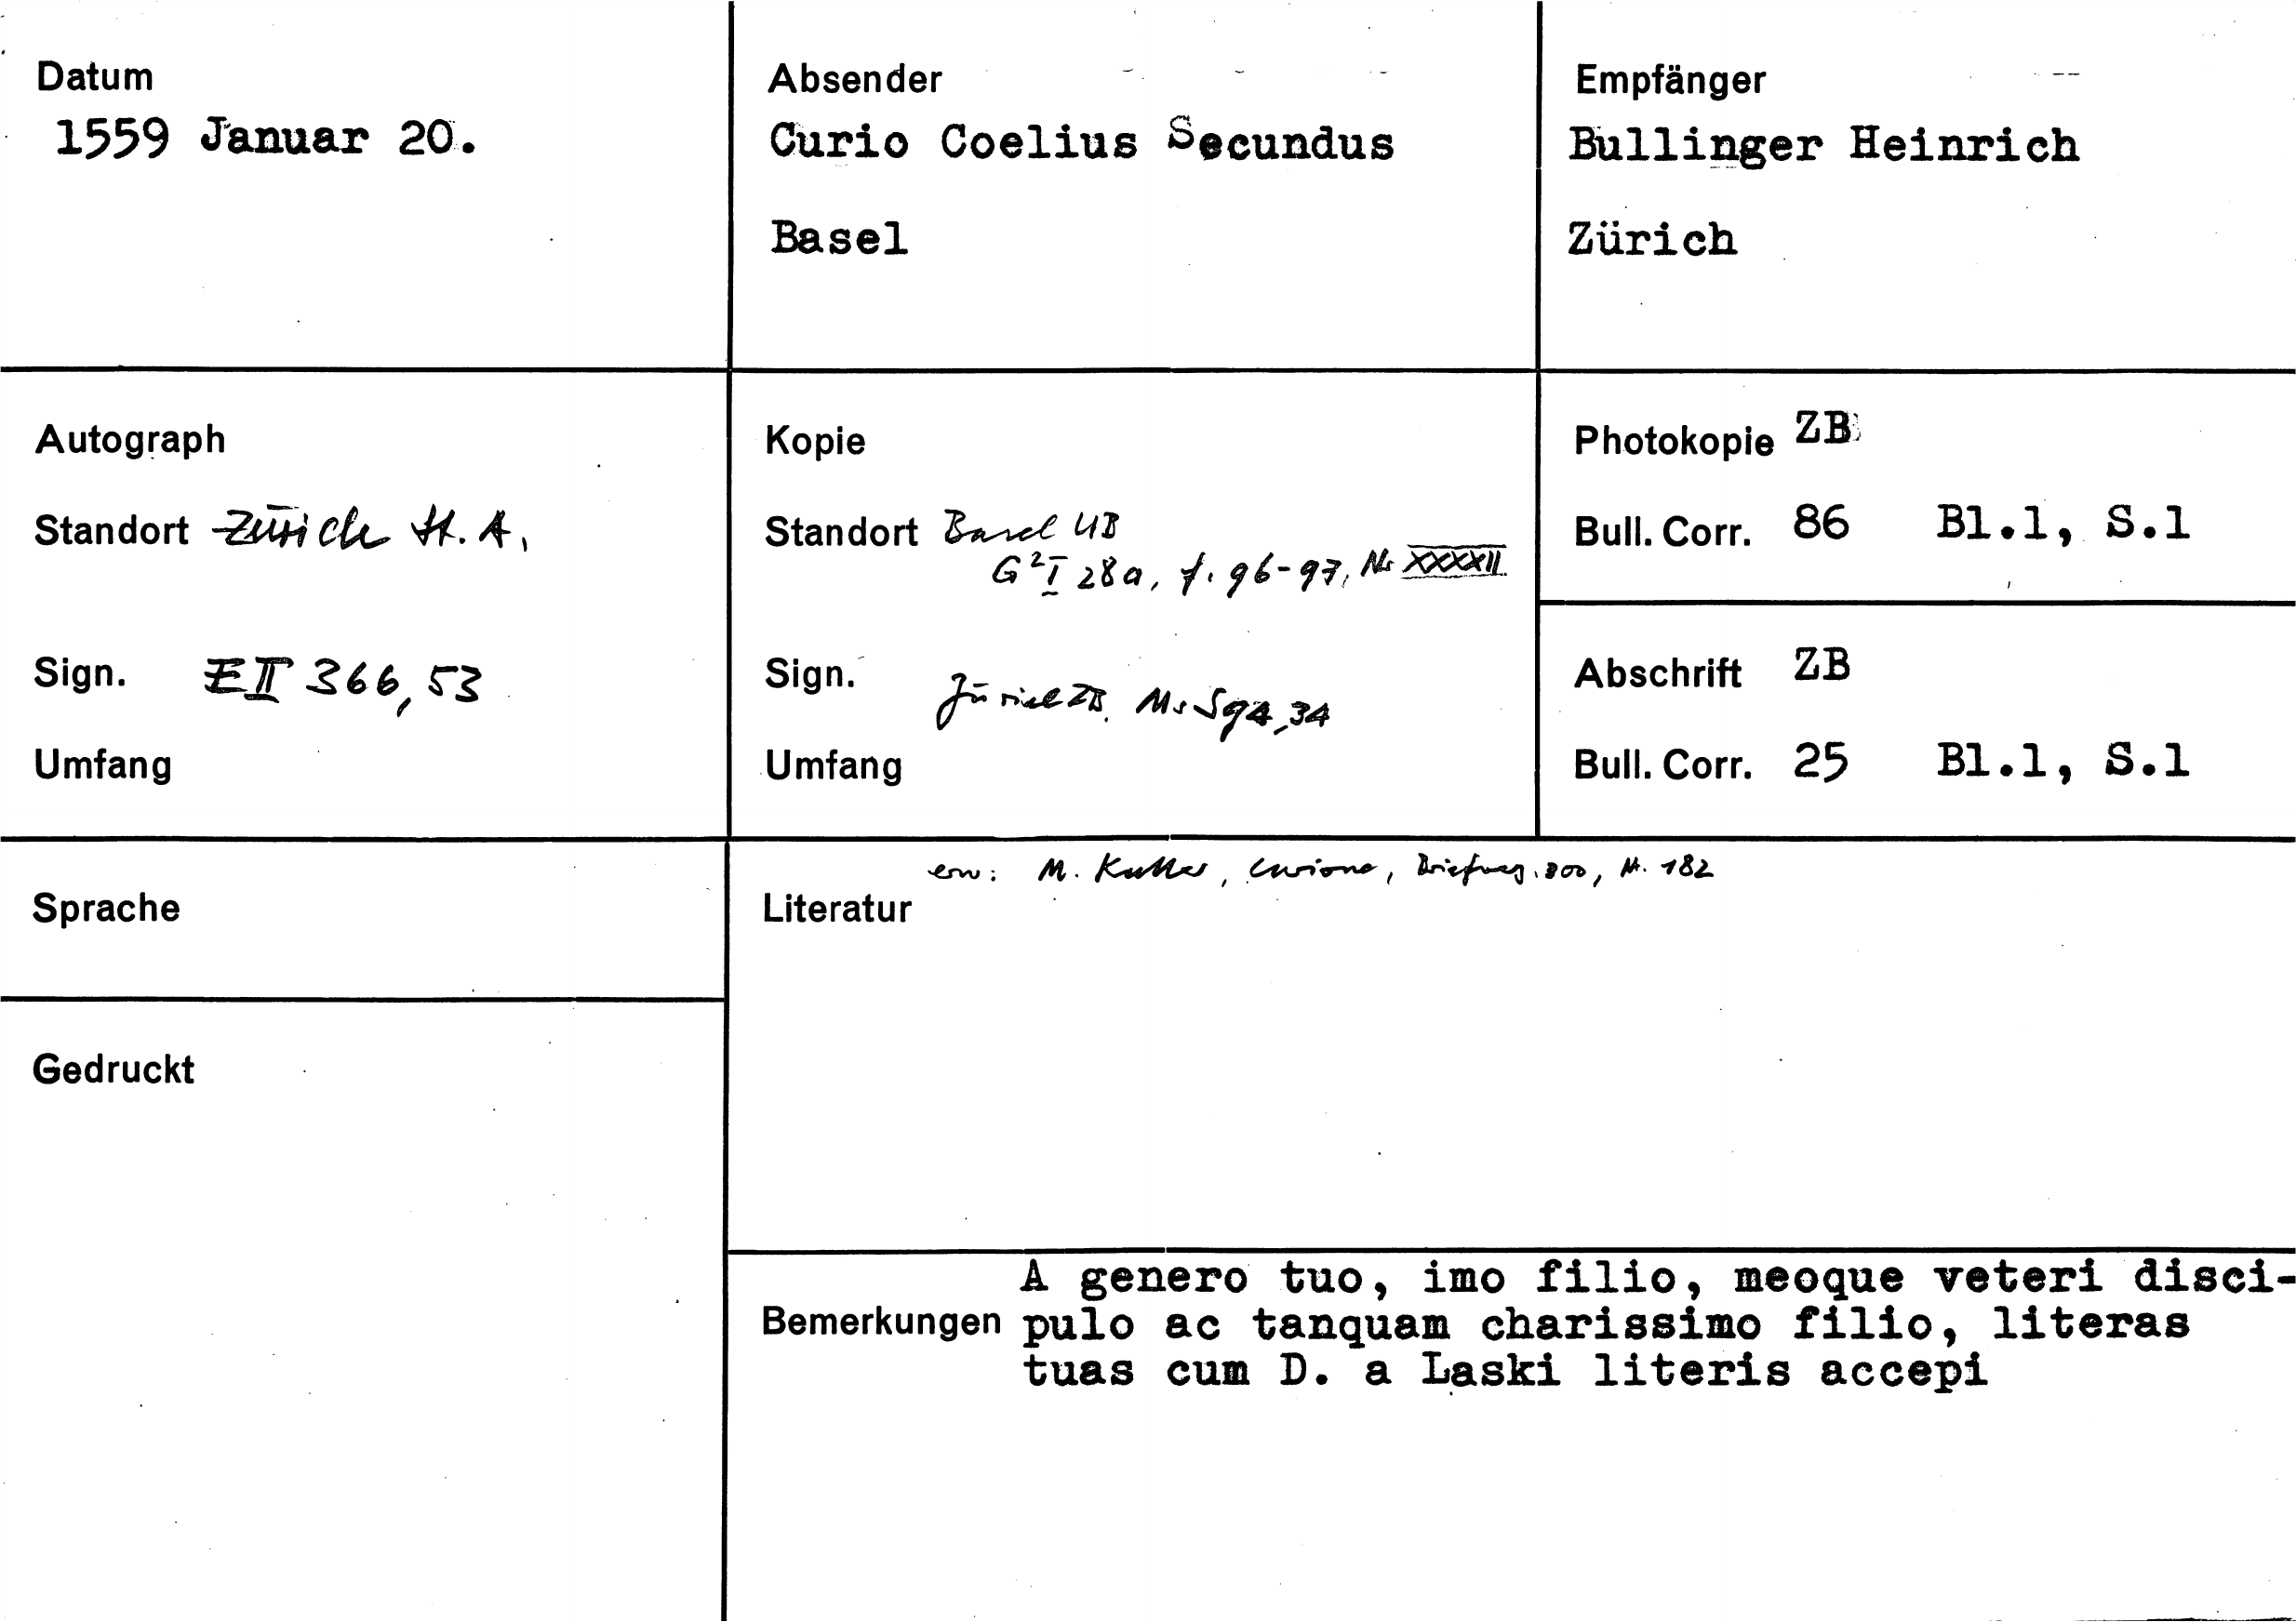 Datum
1559 Januar 20.
Absender
Curio Coelius Secundus
Basel
Empfänger
Bullinger Heinrich
Zürich
Autograph
Standort Zürich St. A.
Sign. E II 366, 53
Umfang
Kopie
Standort Basel UB
G² I 28a, f. 96-97, Nr XXXXII
Sign. Zürich ZB. Ms S 94, 34
Umfang
Photokopie ZB
Bull. Corr. 86 Bl.1, S.1
Abschrift ZB
Bull. Corr. 25 Bl.1, S.1
Sprache
Gedruckt
erw: M. Kutter, Curione, 300, Nr. 182
Literatur
A genero tuo, imo filio, meoque veteri disci-
Bemerkungen pulo ac tanquam charissimo filio, literas
tuas cum D. a Laski literis accepi